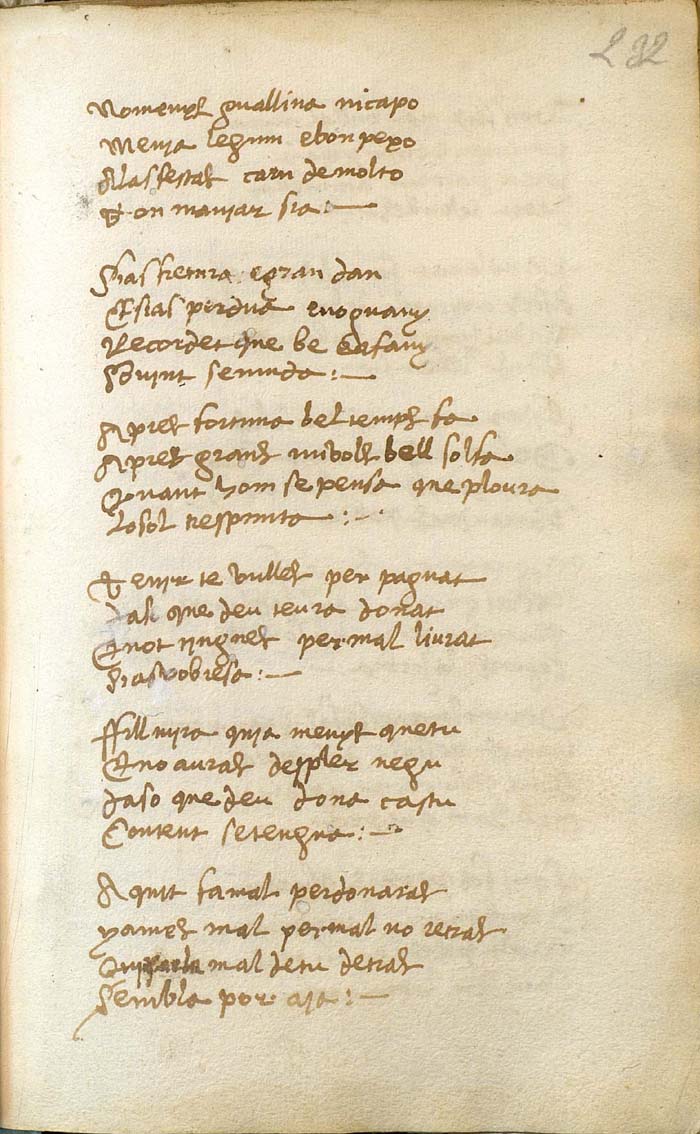 232
Nomenys guallina nicapo
Menja legum ebon pexo
Alas festes carn demolto
E on manjar sia :—
Sias fretura e gran dan
E sias perdua enoguany
Recordet que be safany
Souint semuda :—
Apres fortuna bel temps fa
Apres grans nivols bell sol fa
Quant hom se pensa que ploura
Lo sol nespunta :—
Tenir te vulles per paguat
dali que deu teura donat
E not tingnes per mal livrat
Sias pobresa :—
Ffill mira quia menys que tu
E no auras despler negu
daso que deu dona cascu
Content setengna :—
A quit fa mal perdonaras
yames mal per mal no retras
Qui parla mal de tu detras
Sembla por aja :—